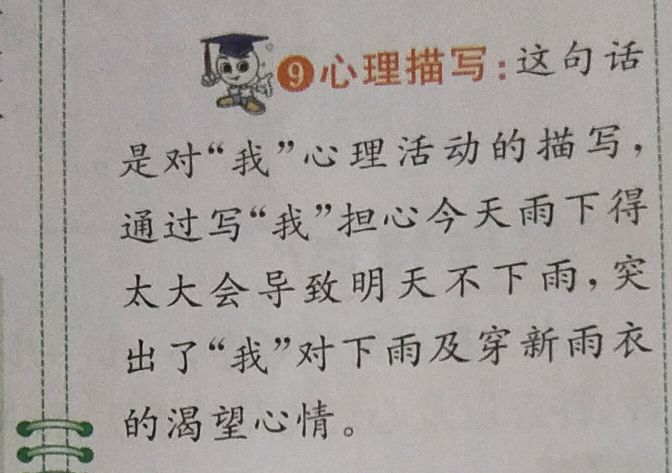 ❾心理描写：这句话
是对“我”心理活动的描写，
通过写“我”担心今天雨下得
太大会导致明天不下雨，突
出了“我”对下雨及穿新雨衣
的渴望心情。